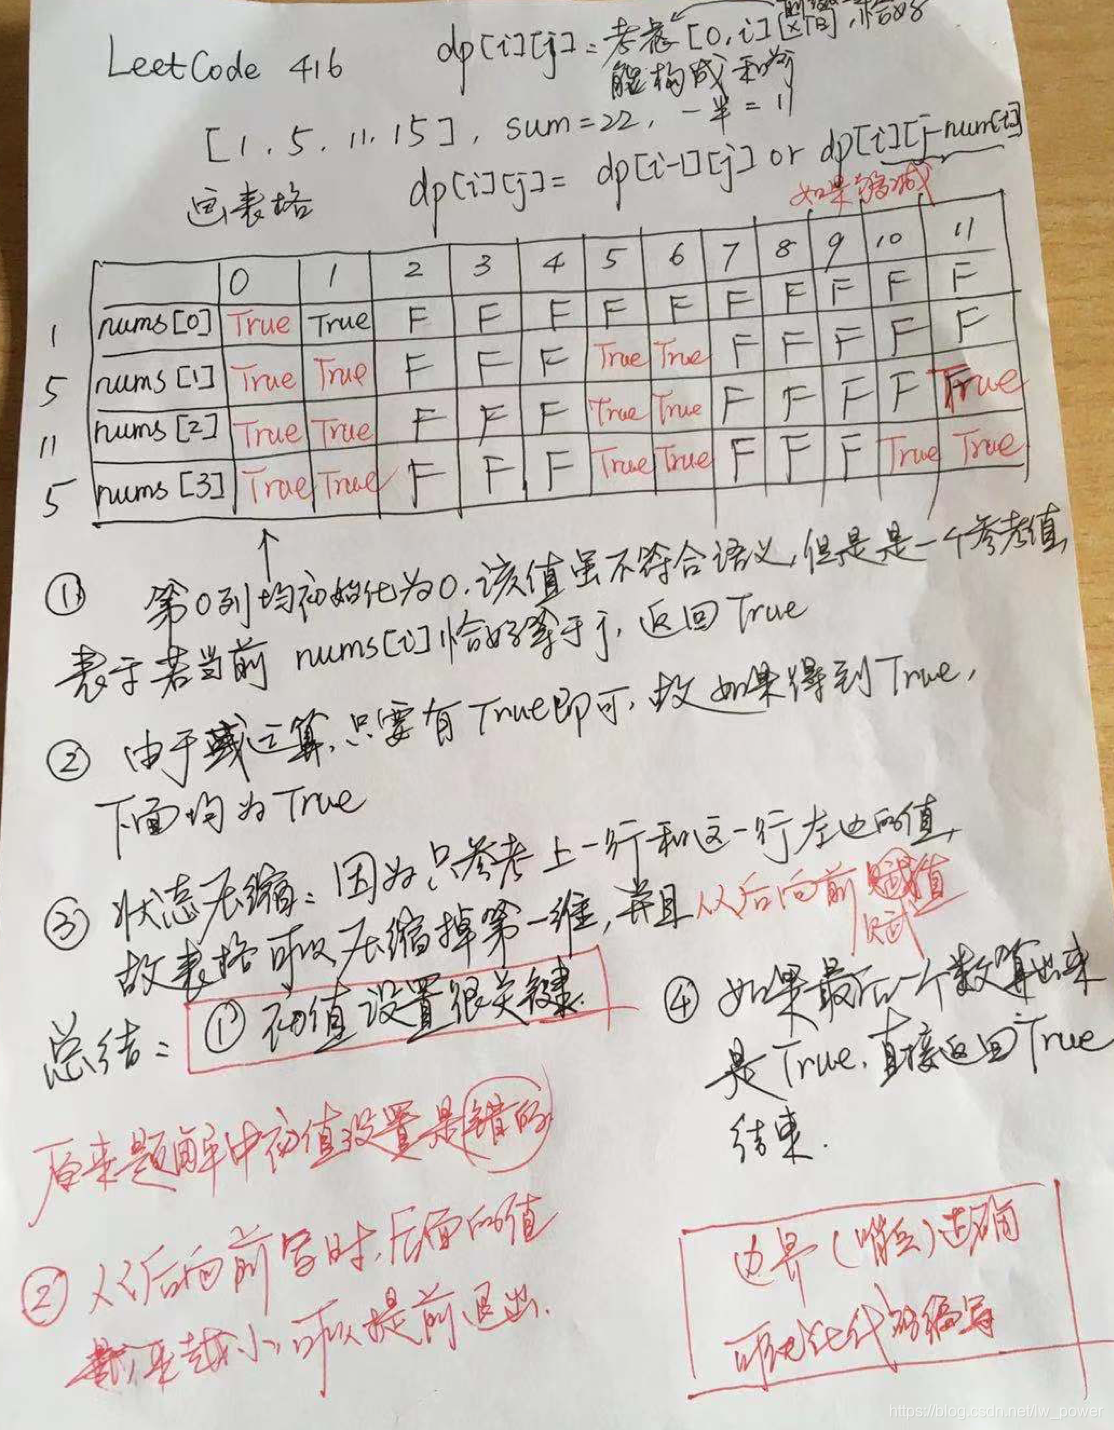 LeetCode 416
dp[i][j] = 考虑[0,i][区间], 恰好
能构成和为
[1, 5, 11, 15], sum=22, 一半=11
画表格 dp[i][j] = dp[i-1][j] or dp[i][j-num[i]]
如果够减
0 1 2 3 4 5 6 7 8 9 10 11
1 nums[0] True True F F F F F F F F F F
5 nums[1] True True F F F True True F F F F F
11 nums[2] True True F F F True True F F F F True
5 nums[3] True True F F F True True F F F True True
① 第0列均初始化为0, 该值虽不符合语义, 但是是一个参考值,
表于若当前 nums[i]恰好等于j, 返回True
② 由于或运算, 只要有True即可, 故如果得到True,
下面均为True
③ 状态压缩: 因为只参考上一行和这一行左边的值,
故表格可以压缩掉第一维, 并且从后向前赋值
赋
总结: ① 初值设置很关键.
④ 如果最后一个数算出来
是True, 直接返回True
结束.
原来题解中初值设置是错的
② 从后向前写时, 后面的值
越来越小, 可以提前退出.
边界(哨兵)正确
可优化代码编写
https://blog.csdn.net/lw_power